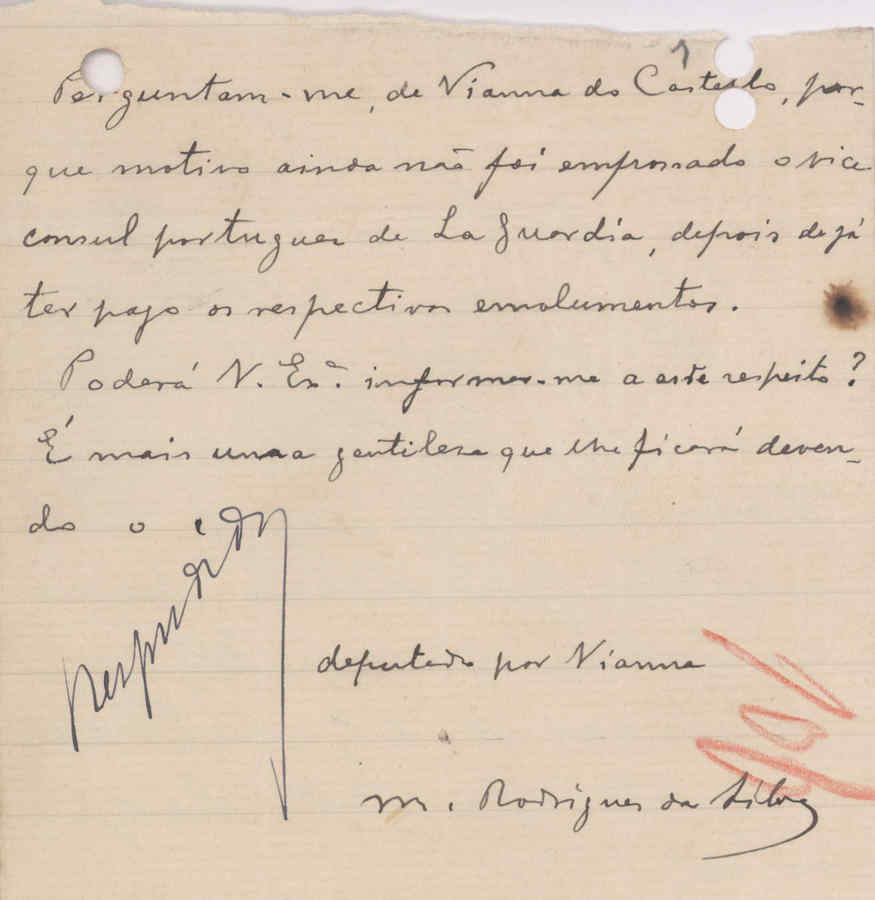 Perguntam-me, de Vianna do Castello, por-
que motivo ainda não foi empossado o vice
consul portuguez de La Guardia, depois de já
ter pago os respectivos emolumentos.
Poderá V. Exª. informar-me a este respeito?
É mais uma gentileza que lhe ficará deven-
do o
deputado por Vianna
M. Rodrigues da Silva